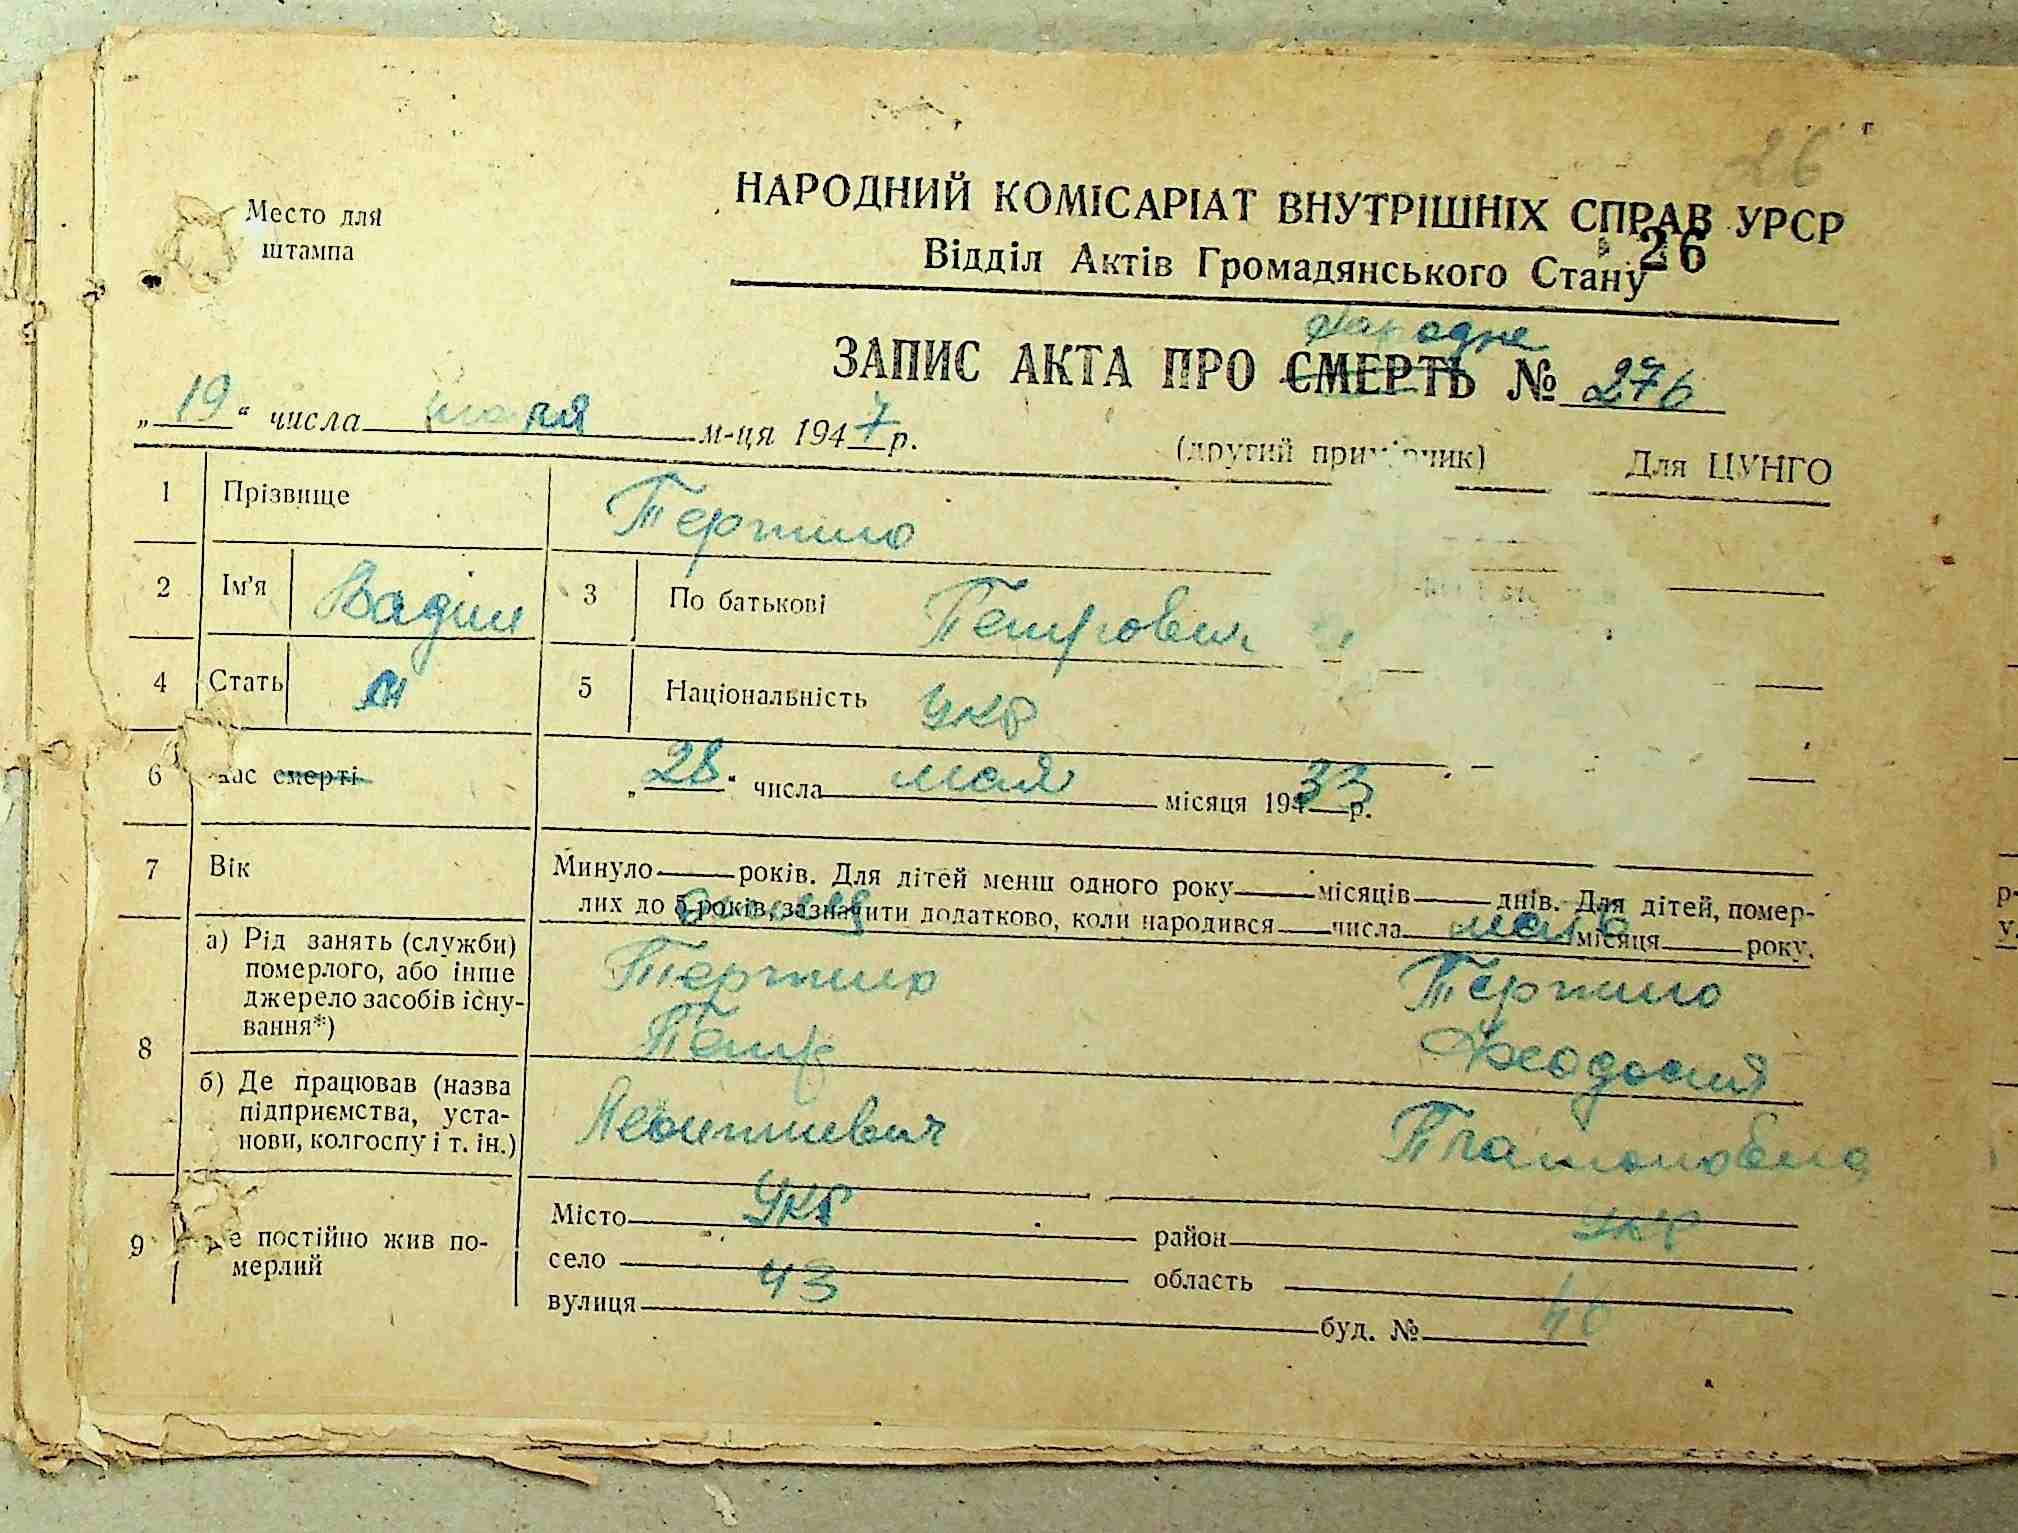 26
Место для
штампа
НАРОДНИЙ КОМІСАРІАТ ВНУТРІШНІХ СПРАВ УРСР
Відділ Актів Громадянського Стану
26
ЗАПИС АКТА ПРО СМЕРТЬ № 276
„19“ числа м-ця 1947 р.
(другий примірчик) Для ЦУНГО
1 Прізвище
2 Ім'я Вадим 3 По батькові Петрович
4 Стать м 5 Національність укр
6 час смерті „28“ числа мая місяця 194 33 р.
7 Вік Минуло року років. Для дітей менш одного року місяців днів. Для дітей, помер-
лих до 5 років, зазначити додатково, коли народився числа місяця року.
8 а) Рід занять (служби)
померлого, або інше
джерело засобів існу-
вання*)
Петр Феодосия
б) Де працював (назва
підприємства, уста-
нови, колгоспу і т. ін.)
Леонтиевич Платоновна
9 Де постійно жив по-
мерлий
Місто укр район укр
село область
вулиця 43 буд. № 40